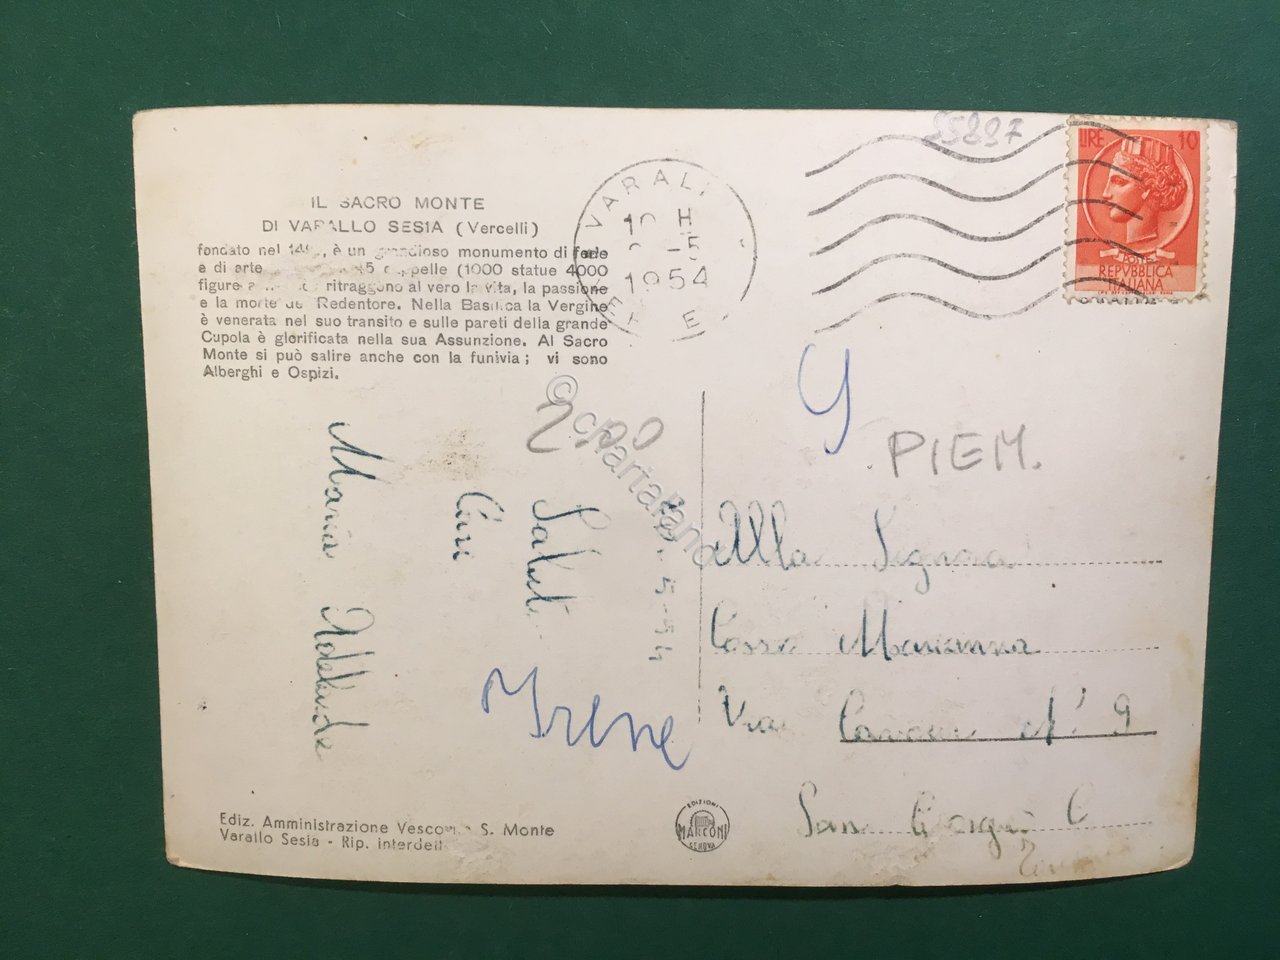 IL SACRO MONTE
DI VARALLO SESIA (Vercelli)
fondato nel è un grandioso monumento di fede
e di arte cappelle (1000 statue 4000
figure ritraggono al vero la vita, la passione
e la morte del Redentore. Nella Basilica la Vergine
è venerata nel suo transito e sulle pareti della grande
Cupola è glorificata nella sua Assunzione. Al Sacro
Monte si può salire anche con la funivia; vi sono
Alberghi e Ospizi.
VARALL
10 H
-5
1954
55897
LIRE 10
POSTE
REPVBBLICA
ITALIANA
y
PIEM.
2,00
© cartafanc
5-54
Saluti
Cari
Maria Adelaide
Irene
Alla Signora
Cossa Marianna
Via Cavour N° 9
San Giorgio C
Ediz. Amministrazione Vescovile S. Monte
Varallo Sesia - Rip. interdett
EDIZIONI
MARCONI
GENOVA